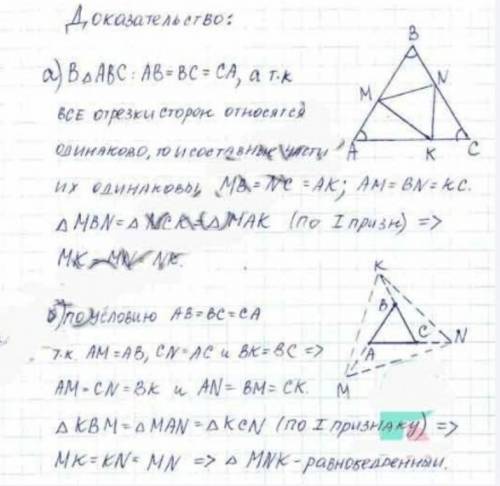 Доказательство:
а) В △ABC: AB=BC=CA, а т.к
все отрезки сторон относятся
одинаково, то и составные части
их одинаковы, MB=NC=AK; AM=BN=KC.
△MBN=△NCK=△MAK (по I призн) =>
MK=MN=NK.
B
M
N
A
K
C
б) по условию AB=BC=CA
т.к. AM=AB, CN=AC и BK=BC =>
AM=CN=BK и AN=BM=CK.
△KBM=△MAN=△KCN (по I признаку) =>
MK=KN=MN => △MNK-равнобедренный.
K
B
C
N
A
M